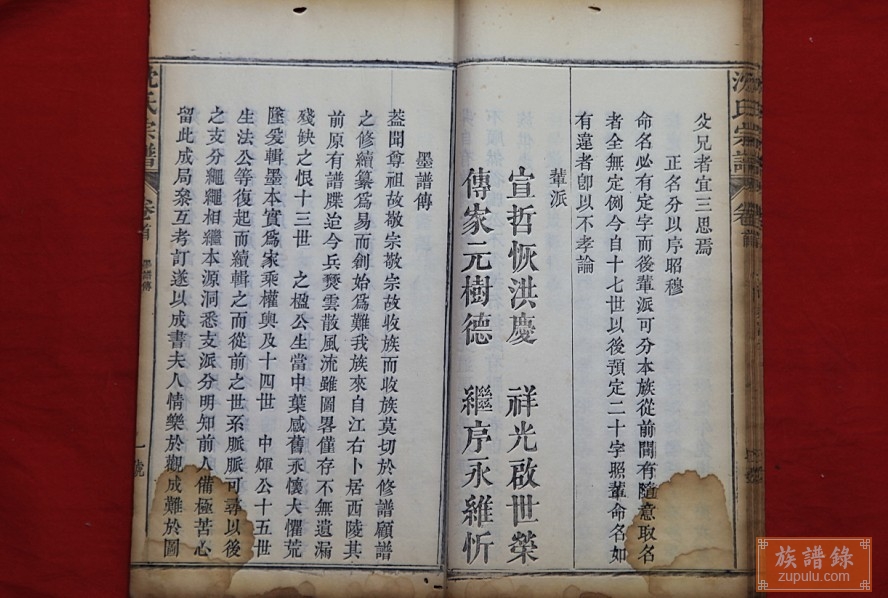 父兄者宜三思焉
正名分以序昭穆
命名必有定字而後輩派可分本族從前間有隨意取名
者全無定例今自十七世以後預定二十字照輩命名如
有違者卽以不孝論
輩派
宣哲恢洪慶 祥光啟世榮
傳家元樹德 繼序永維忻
墨譜傳
葢聞尊祖故敬宗敬宗故收族而收族莫切於修譜顧譜
之修續纂爲易而創始爲難我族來自江右卜居西陵其
前原有譜牒迨今兵燹雲散風流雖圖畧僅存不無遺漏
殘缺之恨十三世 之楹公生當中葉感舊永懷大懼荒
墜爰輯墨本實爲家乘權輿及十四世 中煇公十五世
生法公等復起而續輯之而從前之世系脈脈可尋以後
之支分繩繩相繼本源洞悉支派分明知前人備極苦心
留此成局叅互考訂遂以成書夫人情樂於觀成難於圖
氏宗譜 卷首 墨譜傳 一號
氏宗譜 卷首
族譜錄
zupulu.com